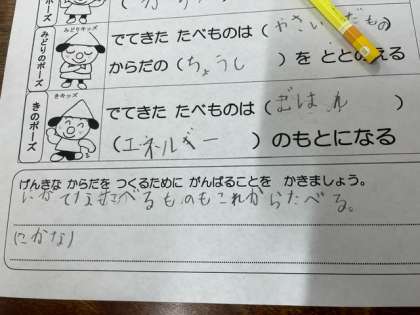 みどりのポーズ
みどりキッズ
でてきた たべものは（やさい だもの
からだの（ちょうし ）を ととのえる
きのポーズ
きキッズ
でてきた たべものは（ごはん ）
（エネルギー ）のもとになる
げんきな からだを つくるために がんばることを かきましょう。
たべるものもこれからたべる。